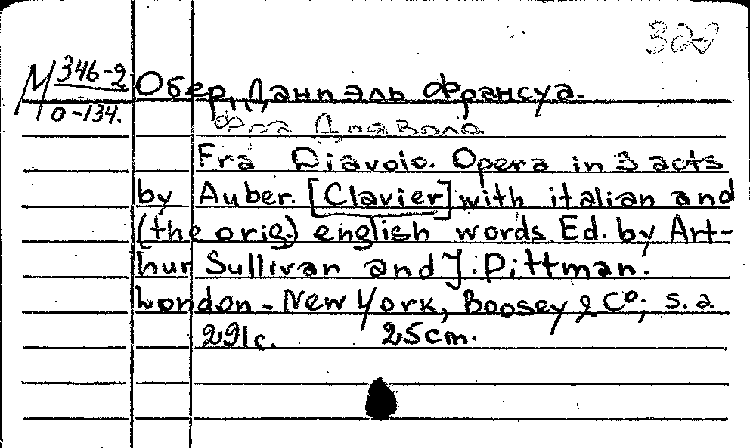 328
М 346-2
0-134.
Обер, Даниэль Франсуа.
Фра Диаволо
Fra Diavolo. Opera in 3 acts
by Auber. [Clavier] with italian and
(the orig.) english words Ed. by Art-
hur Sullivan and J. Pittman.
London - New York, Boosey & Co; s. a
291 с. 25 cm.